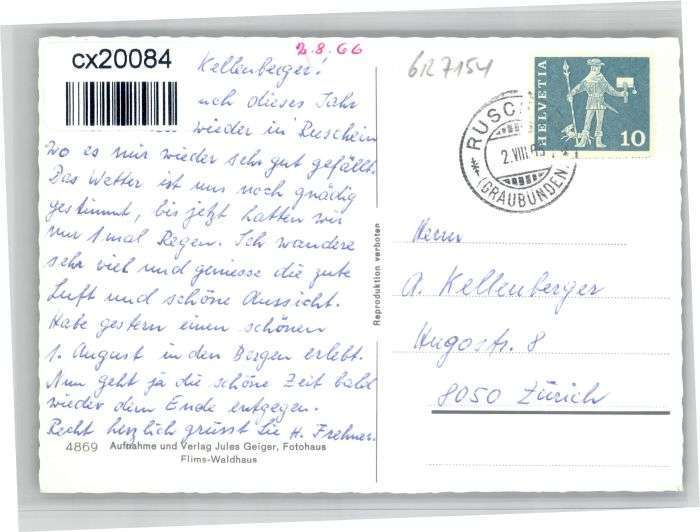 cx20084
2.8.66
Kellenberger!
uch dieses Jahr
wieder in Ruschein
wo es mir wieder sehr gut gefällt.
Das Wetter ist uns noch gnädig
gestimmt, bis jetzt hatten wir
nur 1 mal Regen. Ich wandere
sehr viel und geniesse die gute
Luft und schöne Aussicht.
Habe gestern einen schönen
1. August in den Bergen erlebt.
Nun geht ja die schöne Zeit bald
wieder dem Ende entgegen.
Recht herzlich grüsst Sie H. Frehner.
4869 Aufnahme und Verlag Jules Geiger, Fotohaus
Flims-Waldhaus
Reproduktion verboten
GR 7154
HELVETIA
10
RUSC
2.VIII
(GRAUBÜNDEN)
Herrn
A. Kellenberger
Hugostr. 8
8050 Zürich